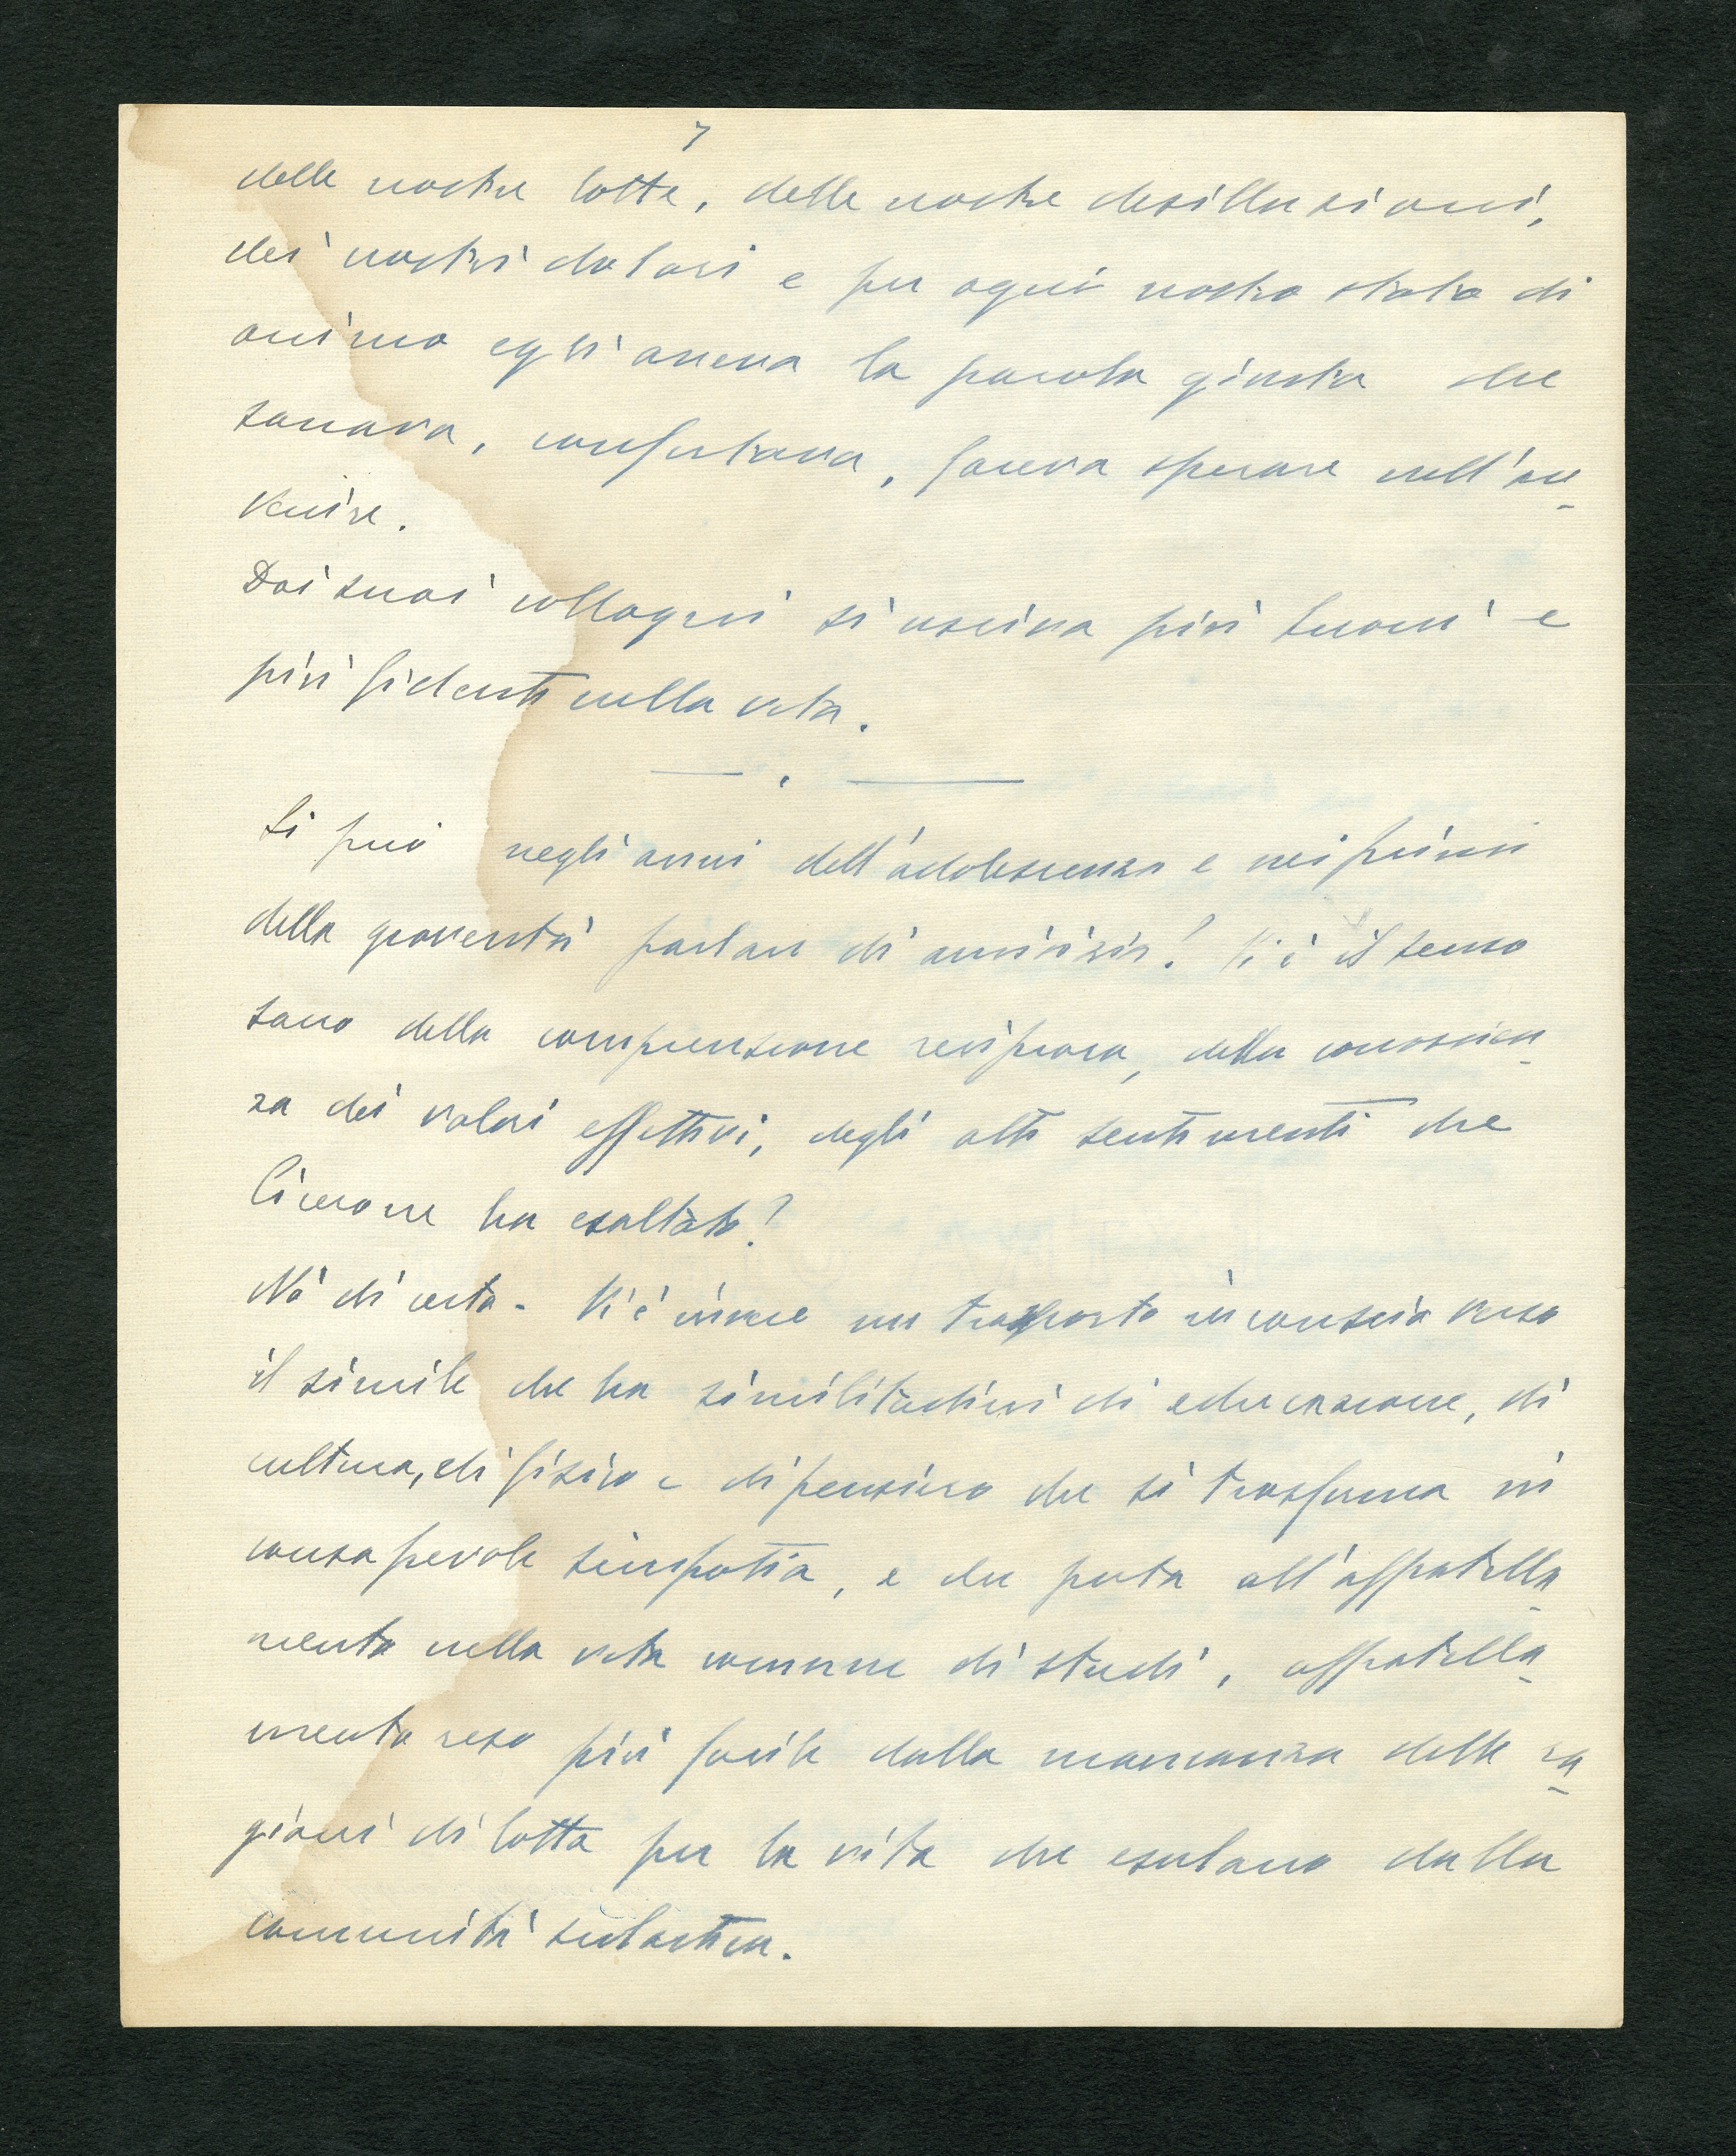 7
delle nostre lotte, delle nostre desillusioni,
dei nostri dolori e per ogni nostro stato di
animo egli aveva la parola giusta che
sanava, confortava, faceva sperare nell'av-
venire.
Dai suoi colloqui si usciva più buoni e
più fidenti nella vita.
Si può negli anni dell'adolescenza e nei primi
della gioventù parlare di amicizia? Vi è il senso
sano della comprensione reciproca, della conoscien-
za dei valori effettivi, degli alti sentimenti che
Cicerone ha esaltato?
Nò di certo. Vi è invece un trasporto inconscio verso
il simile che ha similitudini di educazione, di
cultura, di fisico e di pensiero che si trasforma in
consapevole simpatia, e che porta all'affratella-
mento nella vita comune di studi, affratella-
mento reso più facile dalla mancanza delle ra-
gioni di lotta per la vita che esulano dalla
comunità scolastica.